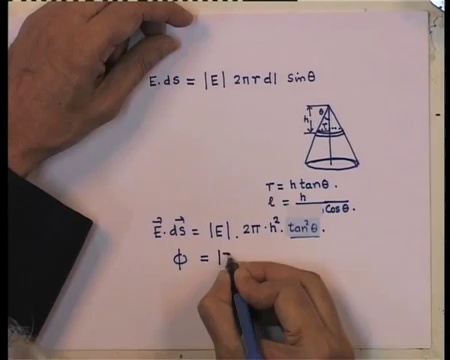 E. ds = |E| 2πr dl sinθ
h θ r
r = h tanθ.
l = h / cosθ.
E⃗. ds⃗ = |E|. 2π·h². tan²θ.
ϕ = |E